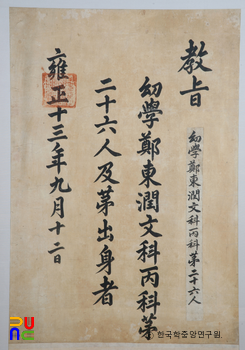 教旨
幼學鄭東潤文科丙科第二十六人
幼學鄭東潤文科丙科第
二十六人及第出身者
雍正十三年九月十二日
한국학중앙연구원